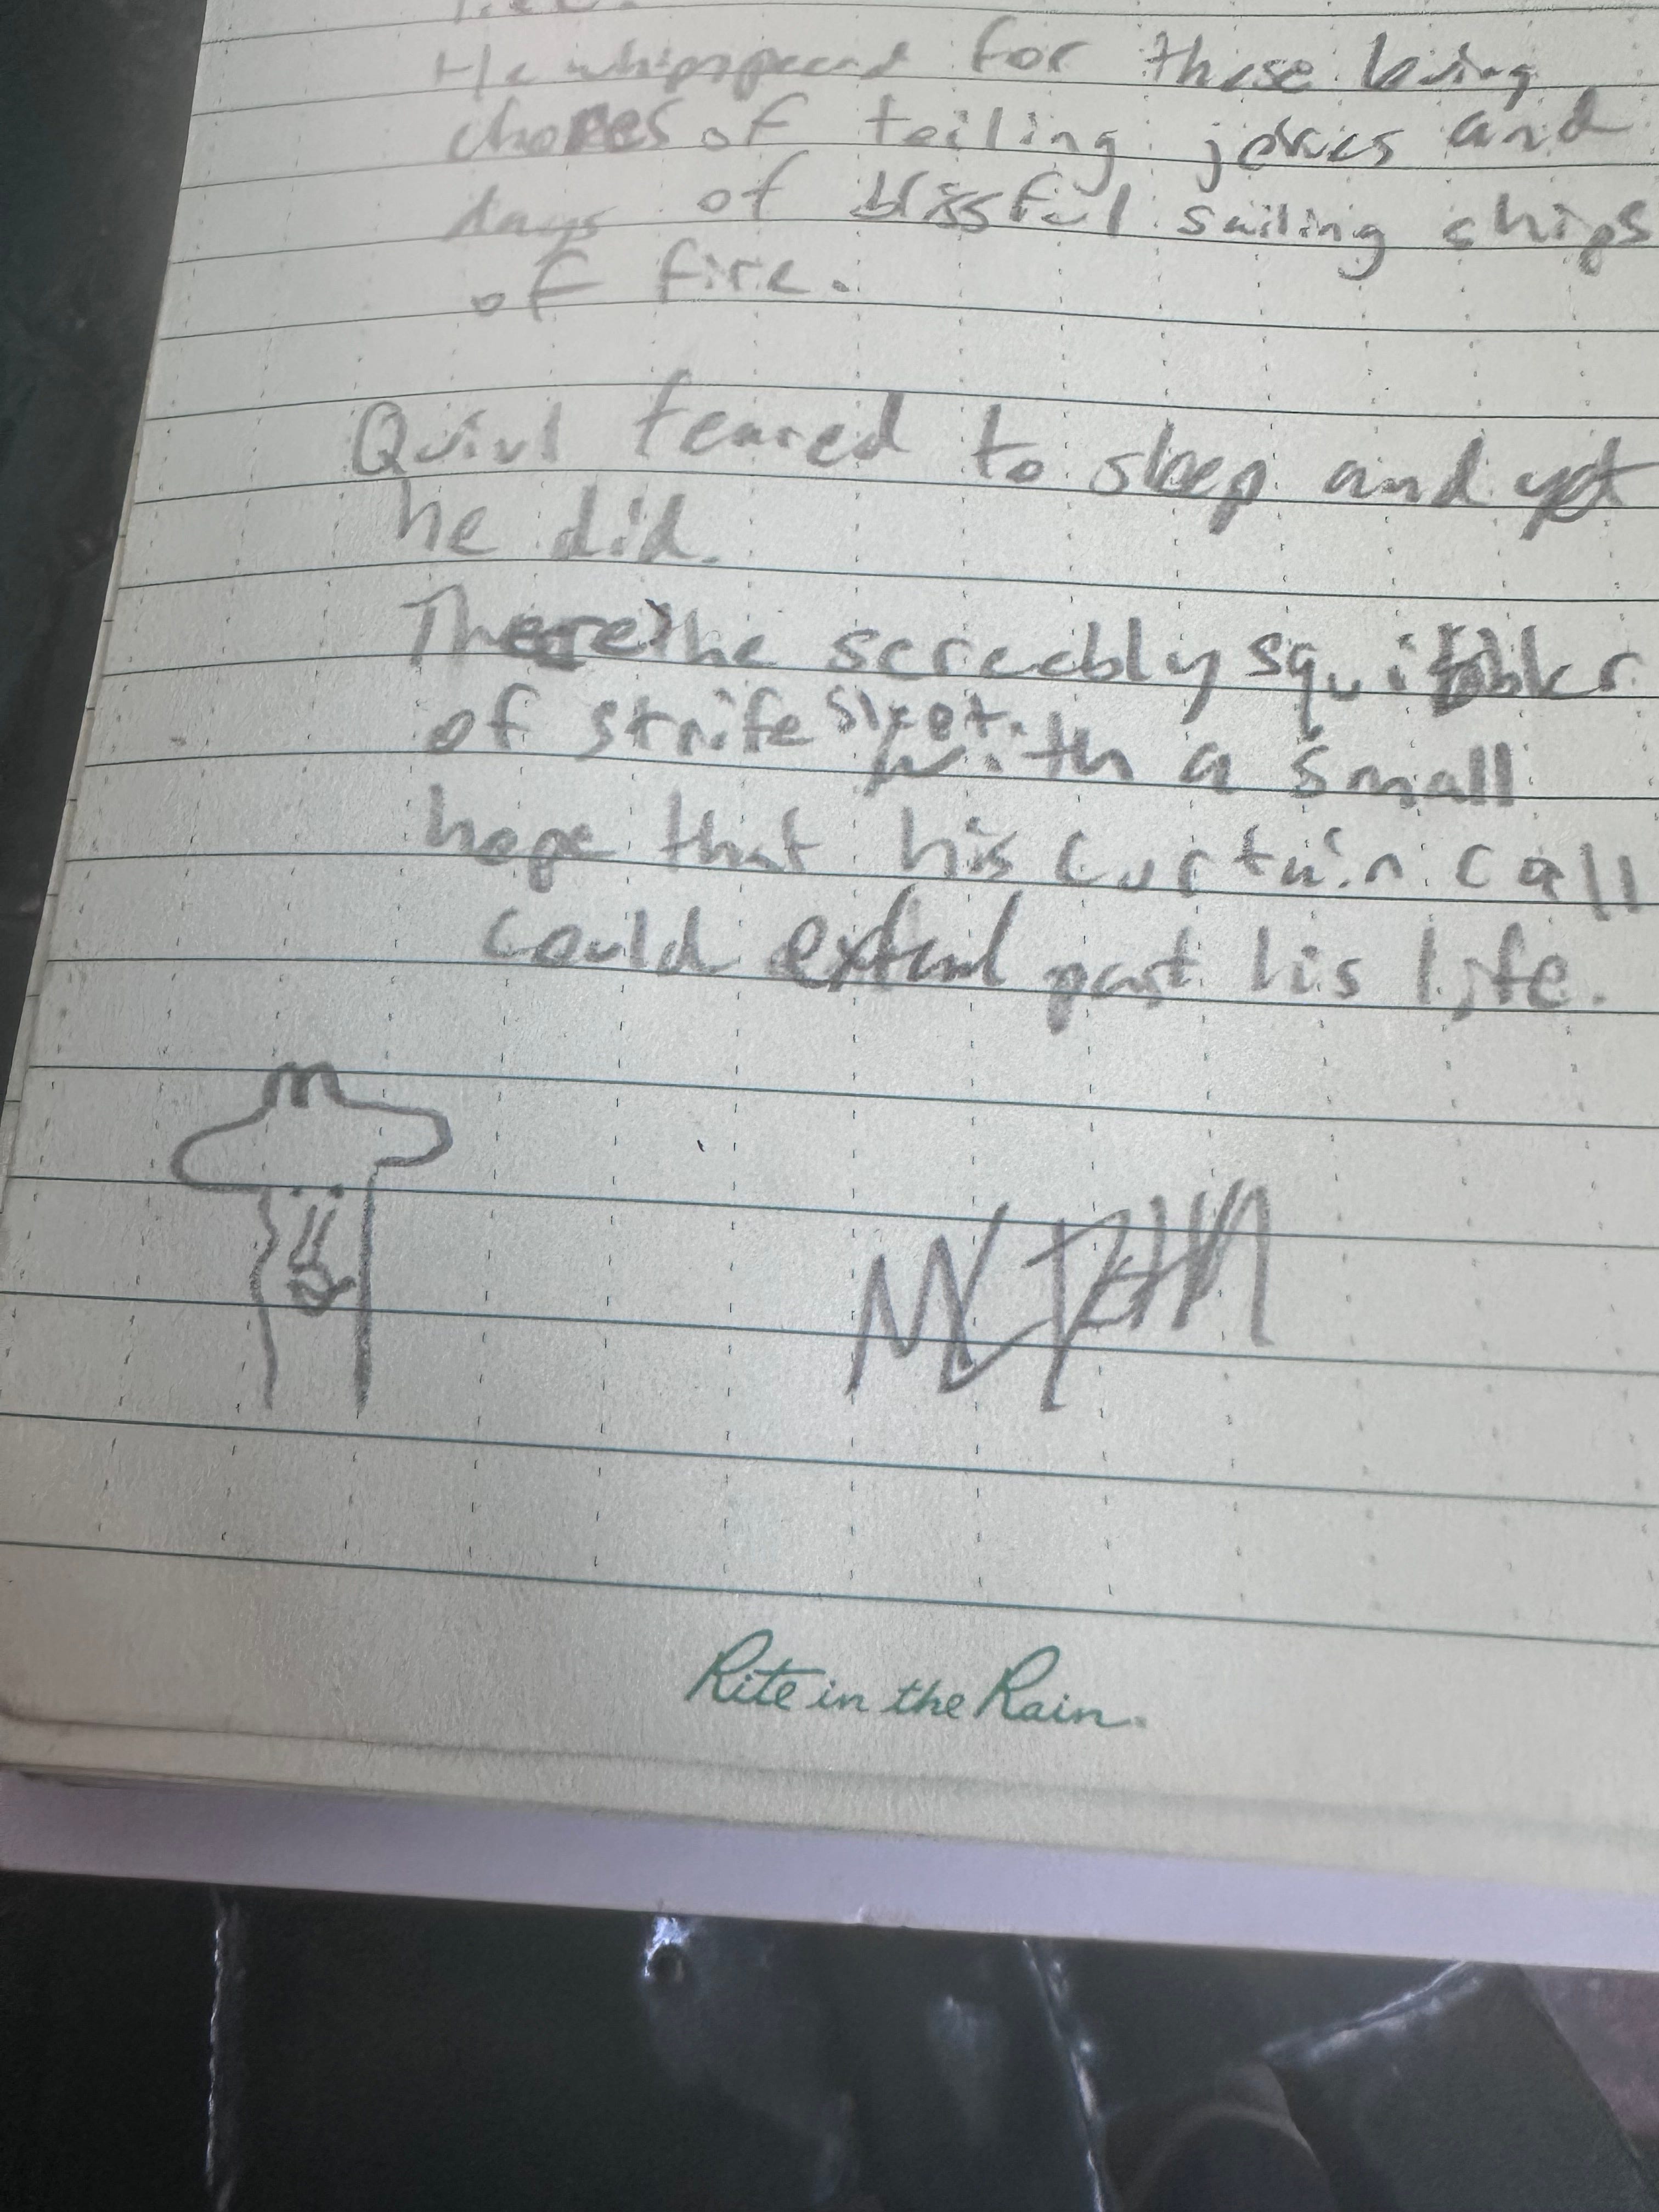 He whispspeared for those living
chores of teiling jokes and
days of blissful sailing ships
of fire.
Quivl feared to sleep and yet
he did.
There the screebly squibbler
of strife slept.
with a small
hope that his curtain call
could extend past his life.
Rite in the Rain.